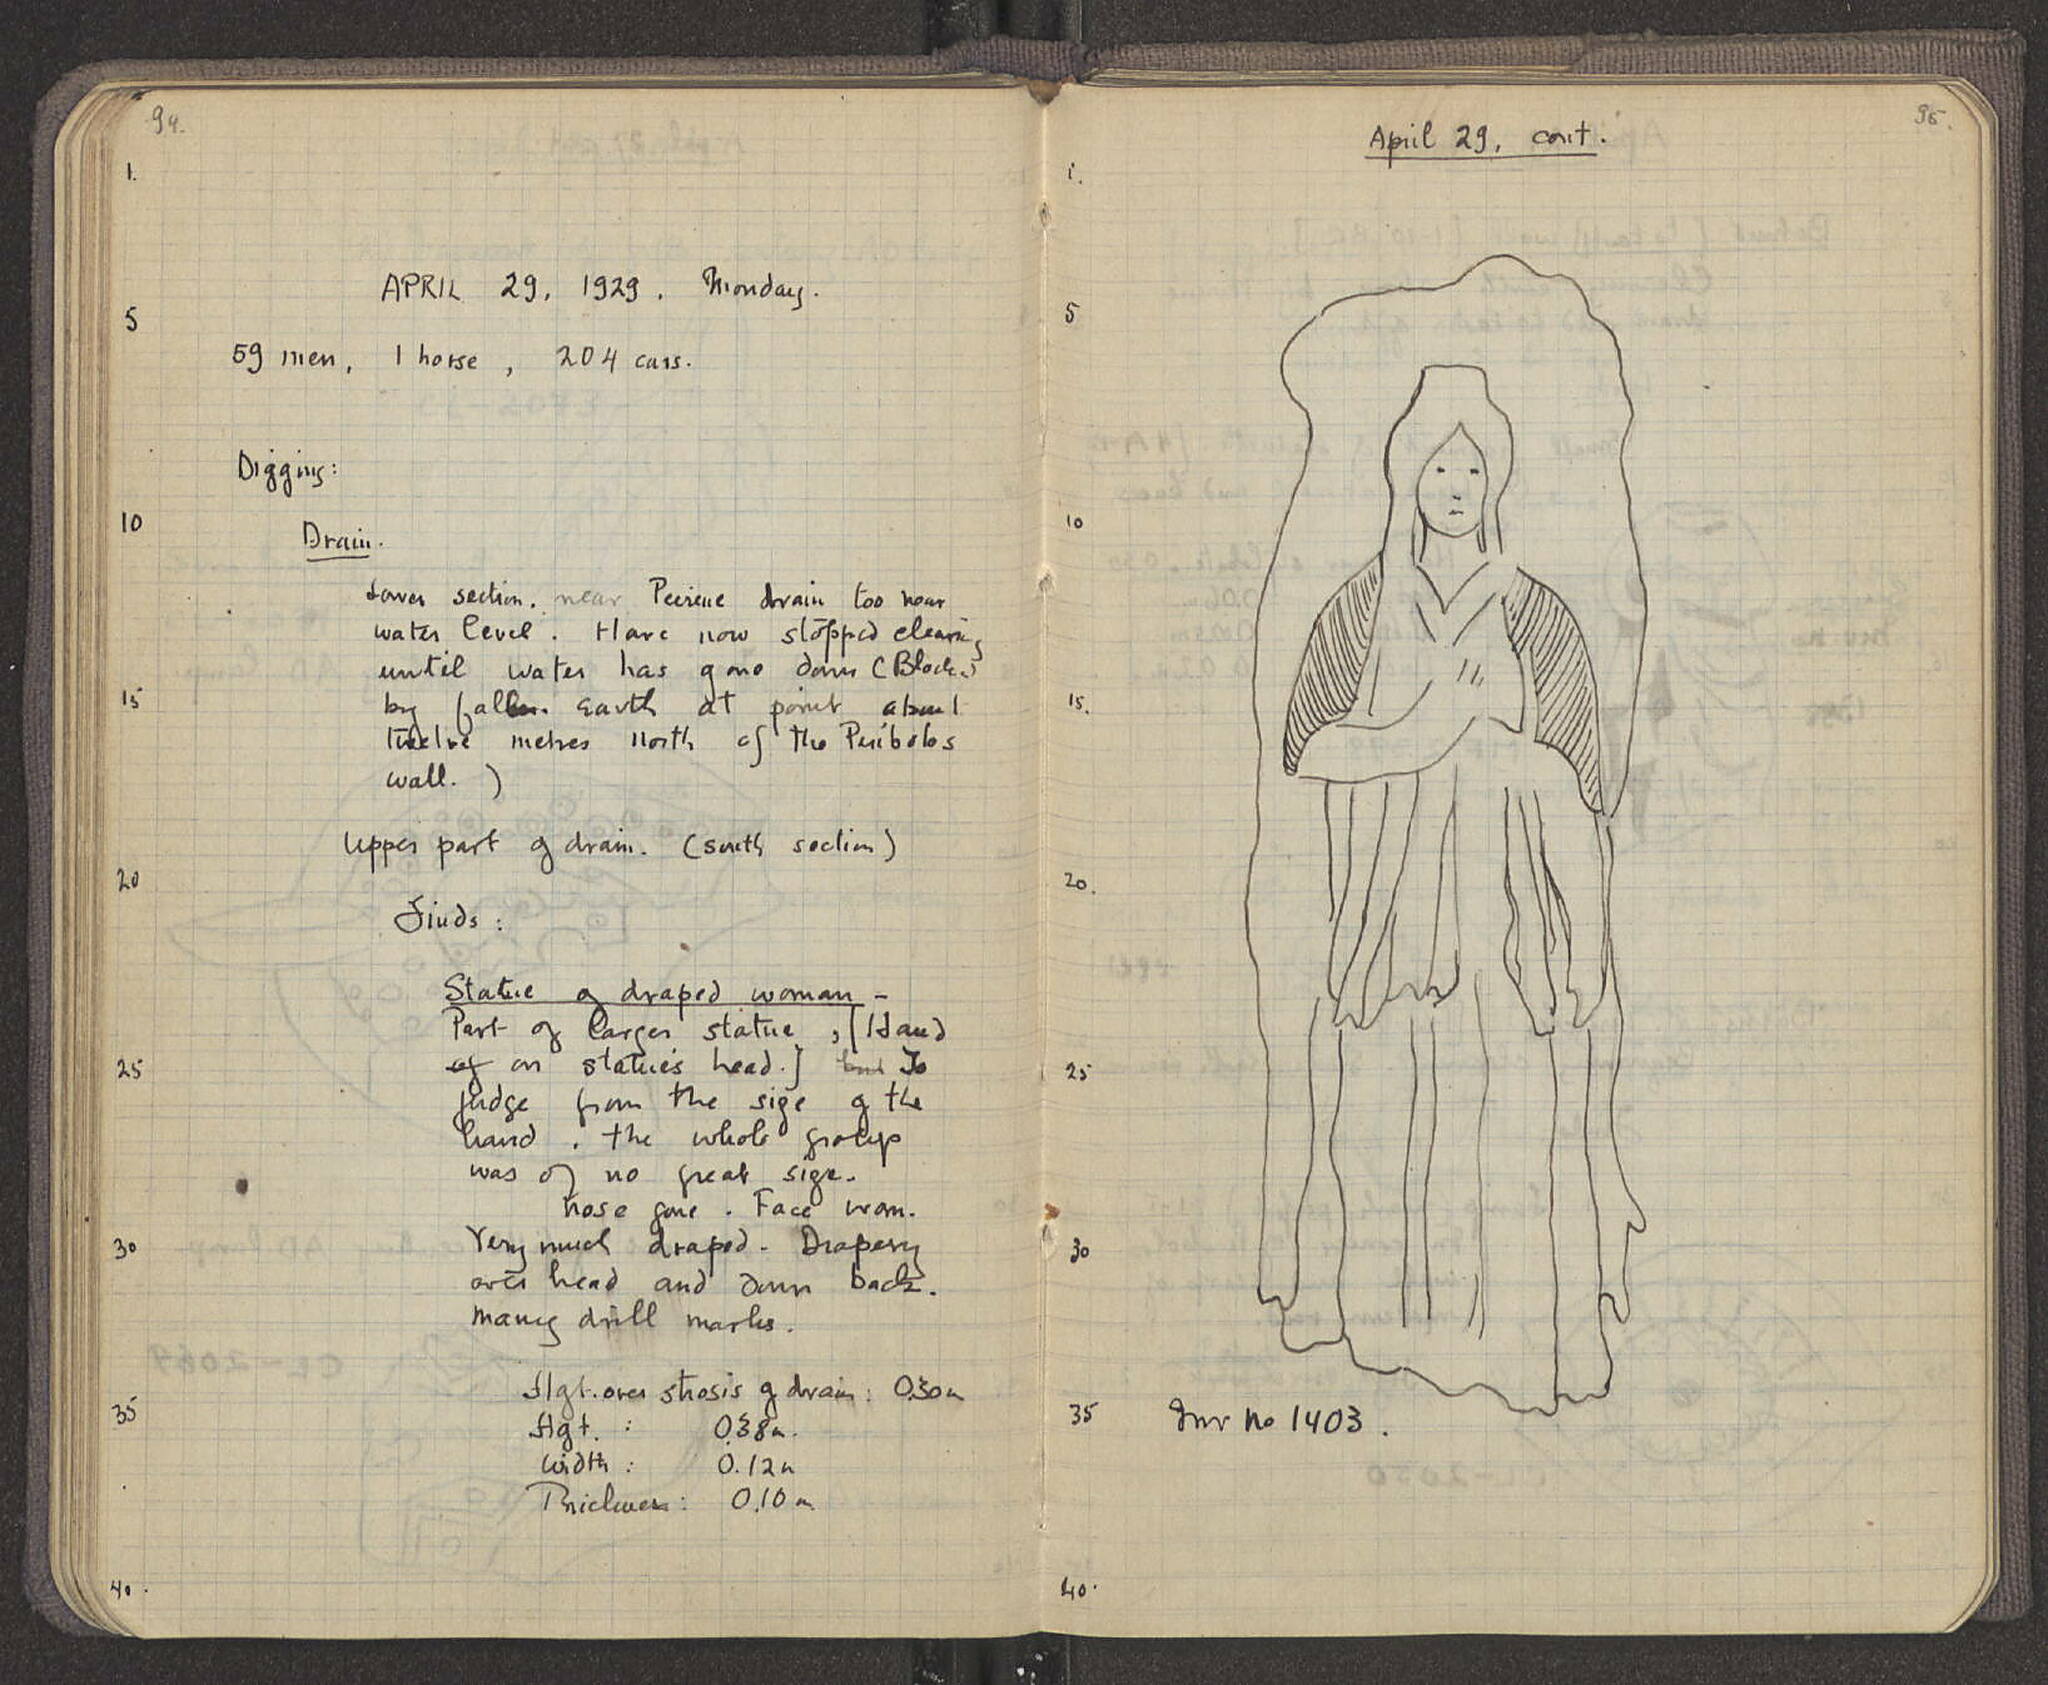 94.
1.
APRIL 29, 1929. Monday.
5
59 men, 1 horse, 204 cars.
Digging:
10
Drain.
Lower section. near Peirene drain too near
water level. Have now stopped clearing
until water has gone down (Blocked
15
by fallen earth at point about
twelve metres north of the Peribolos
wall.)
Upper part of drain. (south section)
20
Finds:
Statue of draped woman -
Part of larger statue, [Hand
25
of on statue's head.] To
judge from the size of the
hand. the whole group
was of no great size.
nose gone. Face worn.
30
Very much draped. Drapery
over head and down back.
Many drill marks.
Hgt. over strosis of drain: 0.30m
35
Hgt. : 0.38m.
Width : 0.12m
Thickness: 0.10m
40.
95.
April 29, cont.
1.
5
10
15.
20.
25
30
35
Inv No 1403.
40.